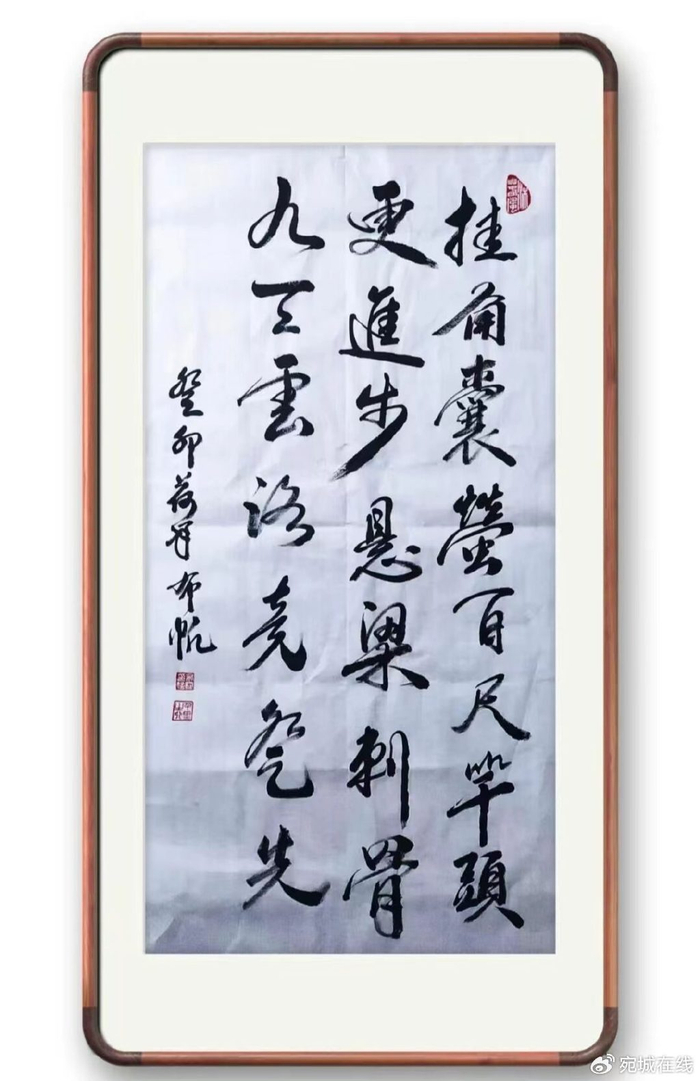 挂角囊螢百尺竿頭
更進步悬梁刺骨
九天雲路竞登先
癸卯荷月布帆
宛城在线